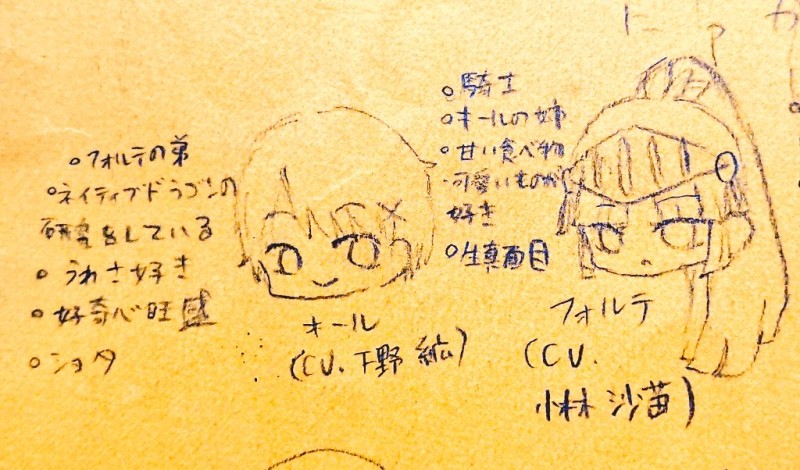 ○フォルテの弟
○ネイティブドラゴンの
研究をしている
○うわさ好き
○好奇心旺盛
○ショタ
オール
(CV.下野 紘)
○騎士
○オールの姉
○甘い食べ物
・可愛いものが
好き
○生真面目
フォルテ
(CV.
小林 沙苗)